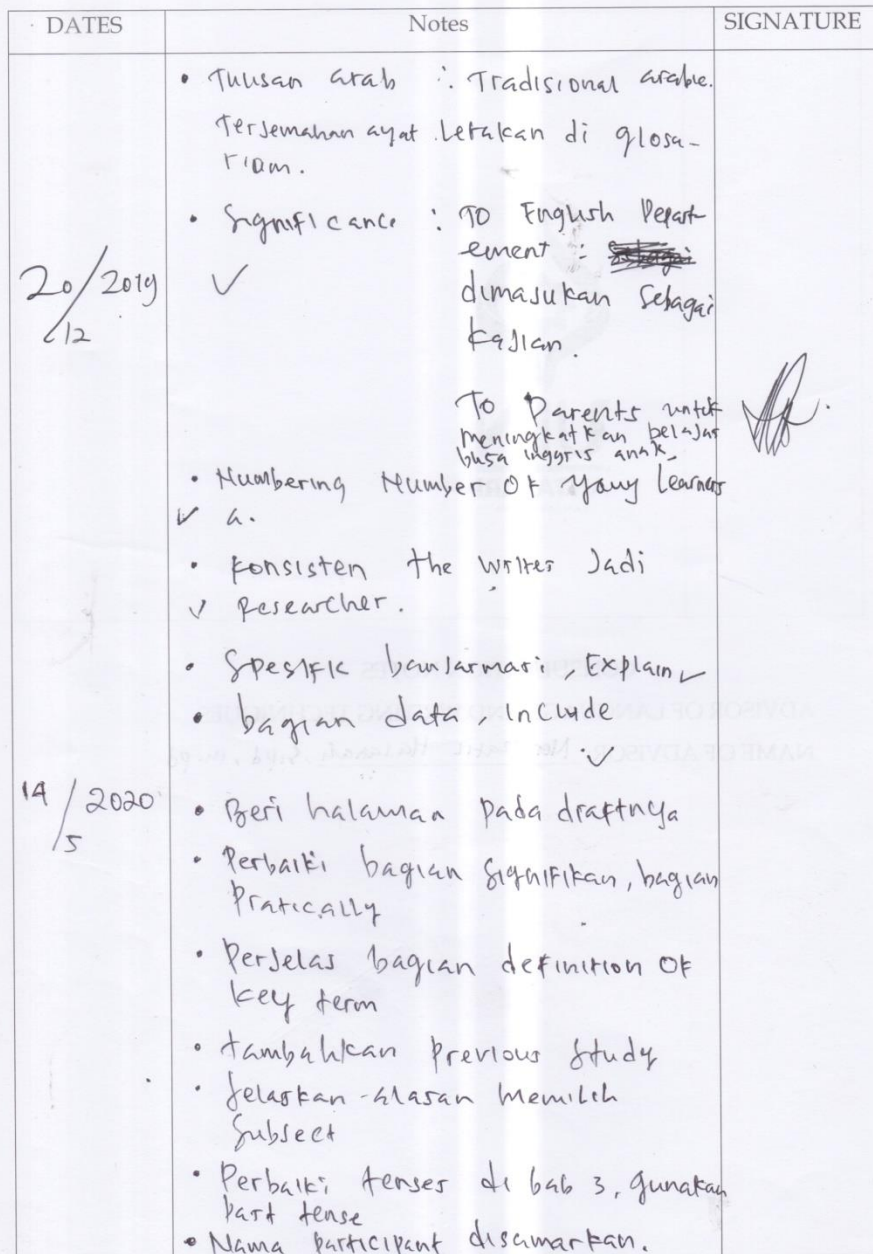 DATES Notes SIGNATURE
• Tulisan arab : Tradisional arabic.
Terjemahan ayat letakan di glosa-
rium.
• Significance : TO English Depart
ement :
20/12 2019 ✓ dimasukan sebagai
kajian.
To Parents untuk
meningkatkan belajar
bhsa inggris anak
• Numbering Number Of young learners
✓ a.
• konsisten the writer Jadi
✓ Researcher.
• Spesifik banjarmasin, Explain ✓
• bagian data, include
✓
14/5 2020 • Beri halaman pada draftnya
• Perbaiki bagian signifikan, bagian
Pratically
• Perjelas bagian definition Of
key term
• tambahkan Previous study
• jelaskan alasan memilih
subject
• Perbaiki tenses di bab 3, gunakan
past tense
• Nama participant disamarkan.
ADVISOR OF
NAME OF ADVISOR